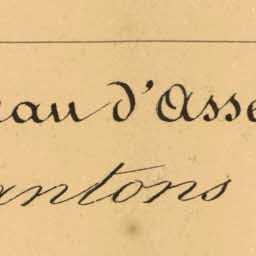 eau d'Asse
antons